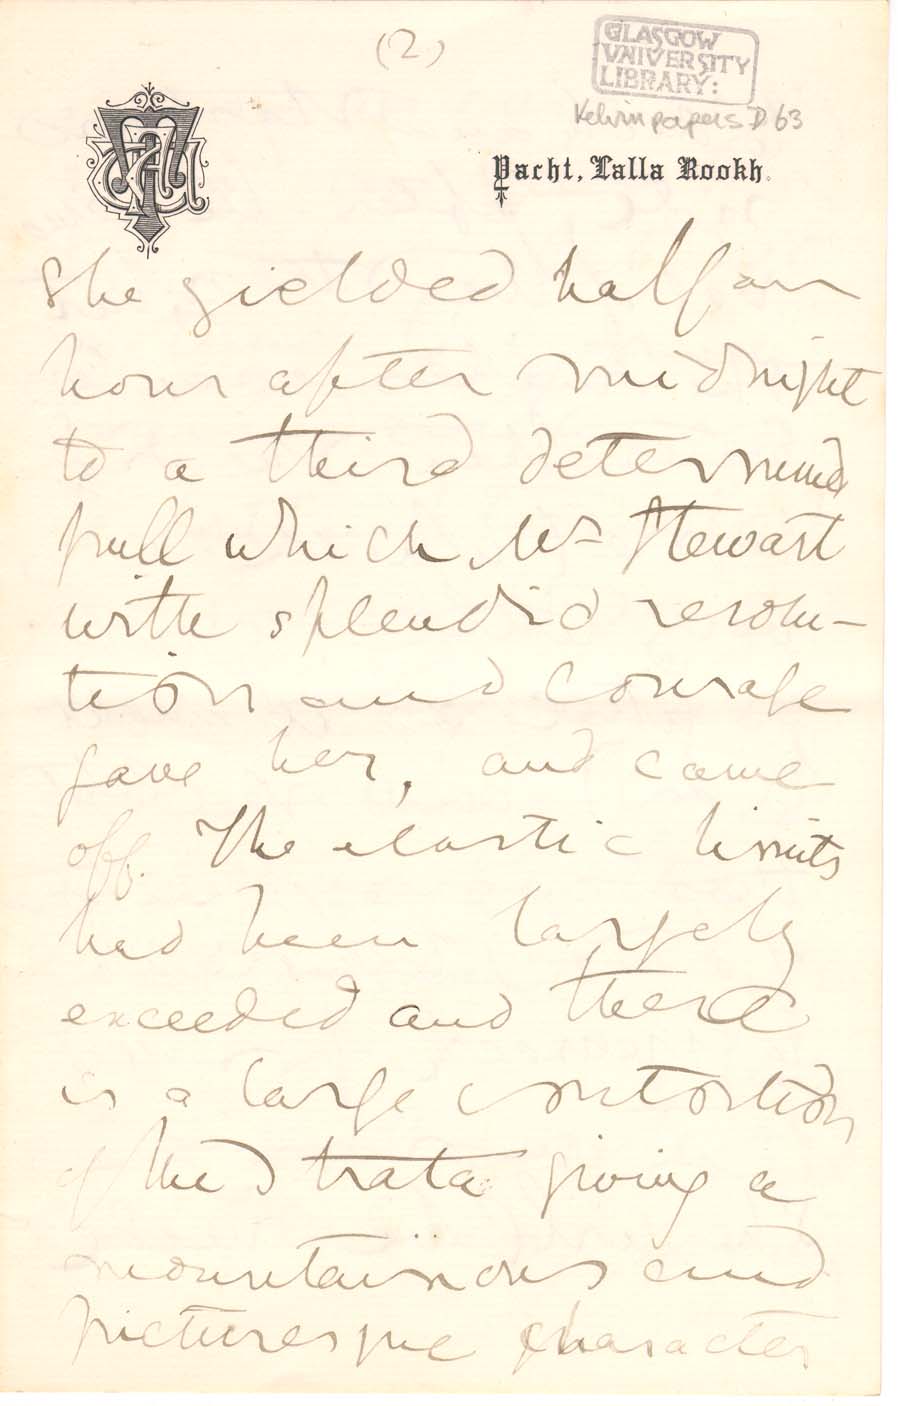 (2)
GLASGOW
UNIVERSITY
LIBRARY:
Kelvin papers D 63
Yacht, Lalla Rookh.
She yielded half an
hour after midnight
to a third determined
pull which Mr Stewart
with splendid resolu-
tion and courage
gave her, and came
off. The elastic limits
had been largely
exceeded and there
is a large contortion
of the strata giving a
mountainous and
picturesque character